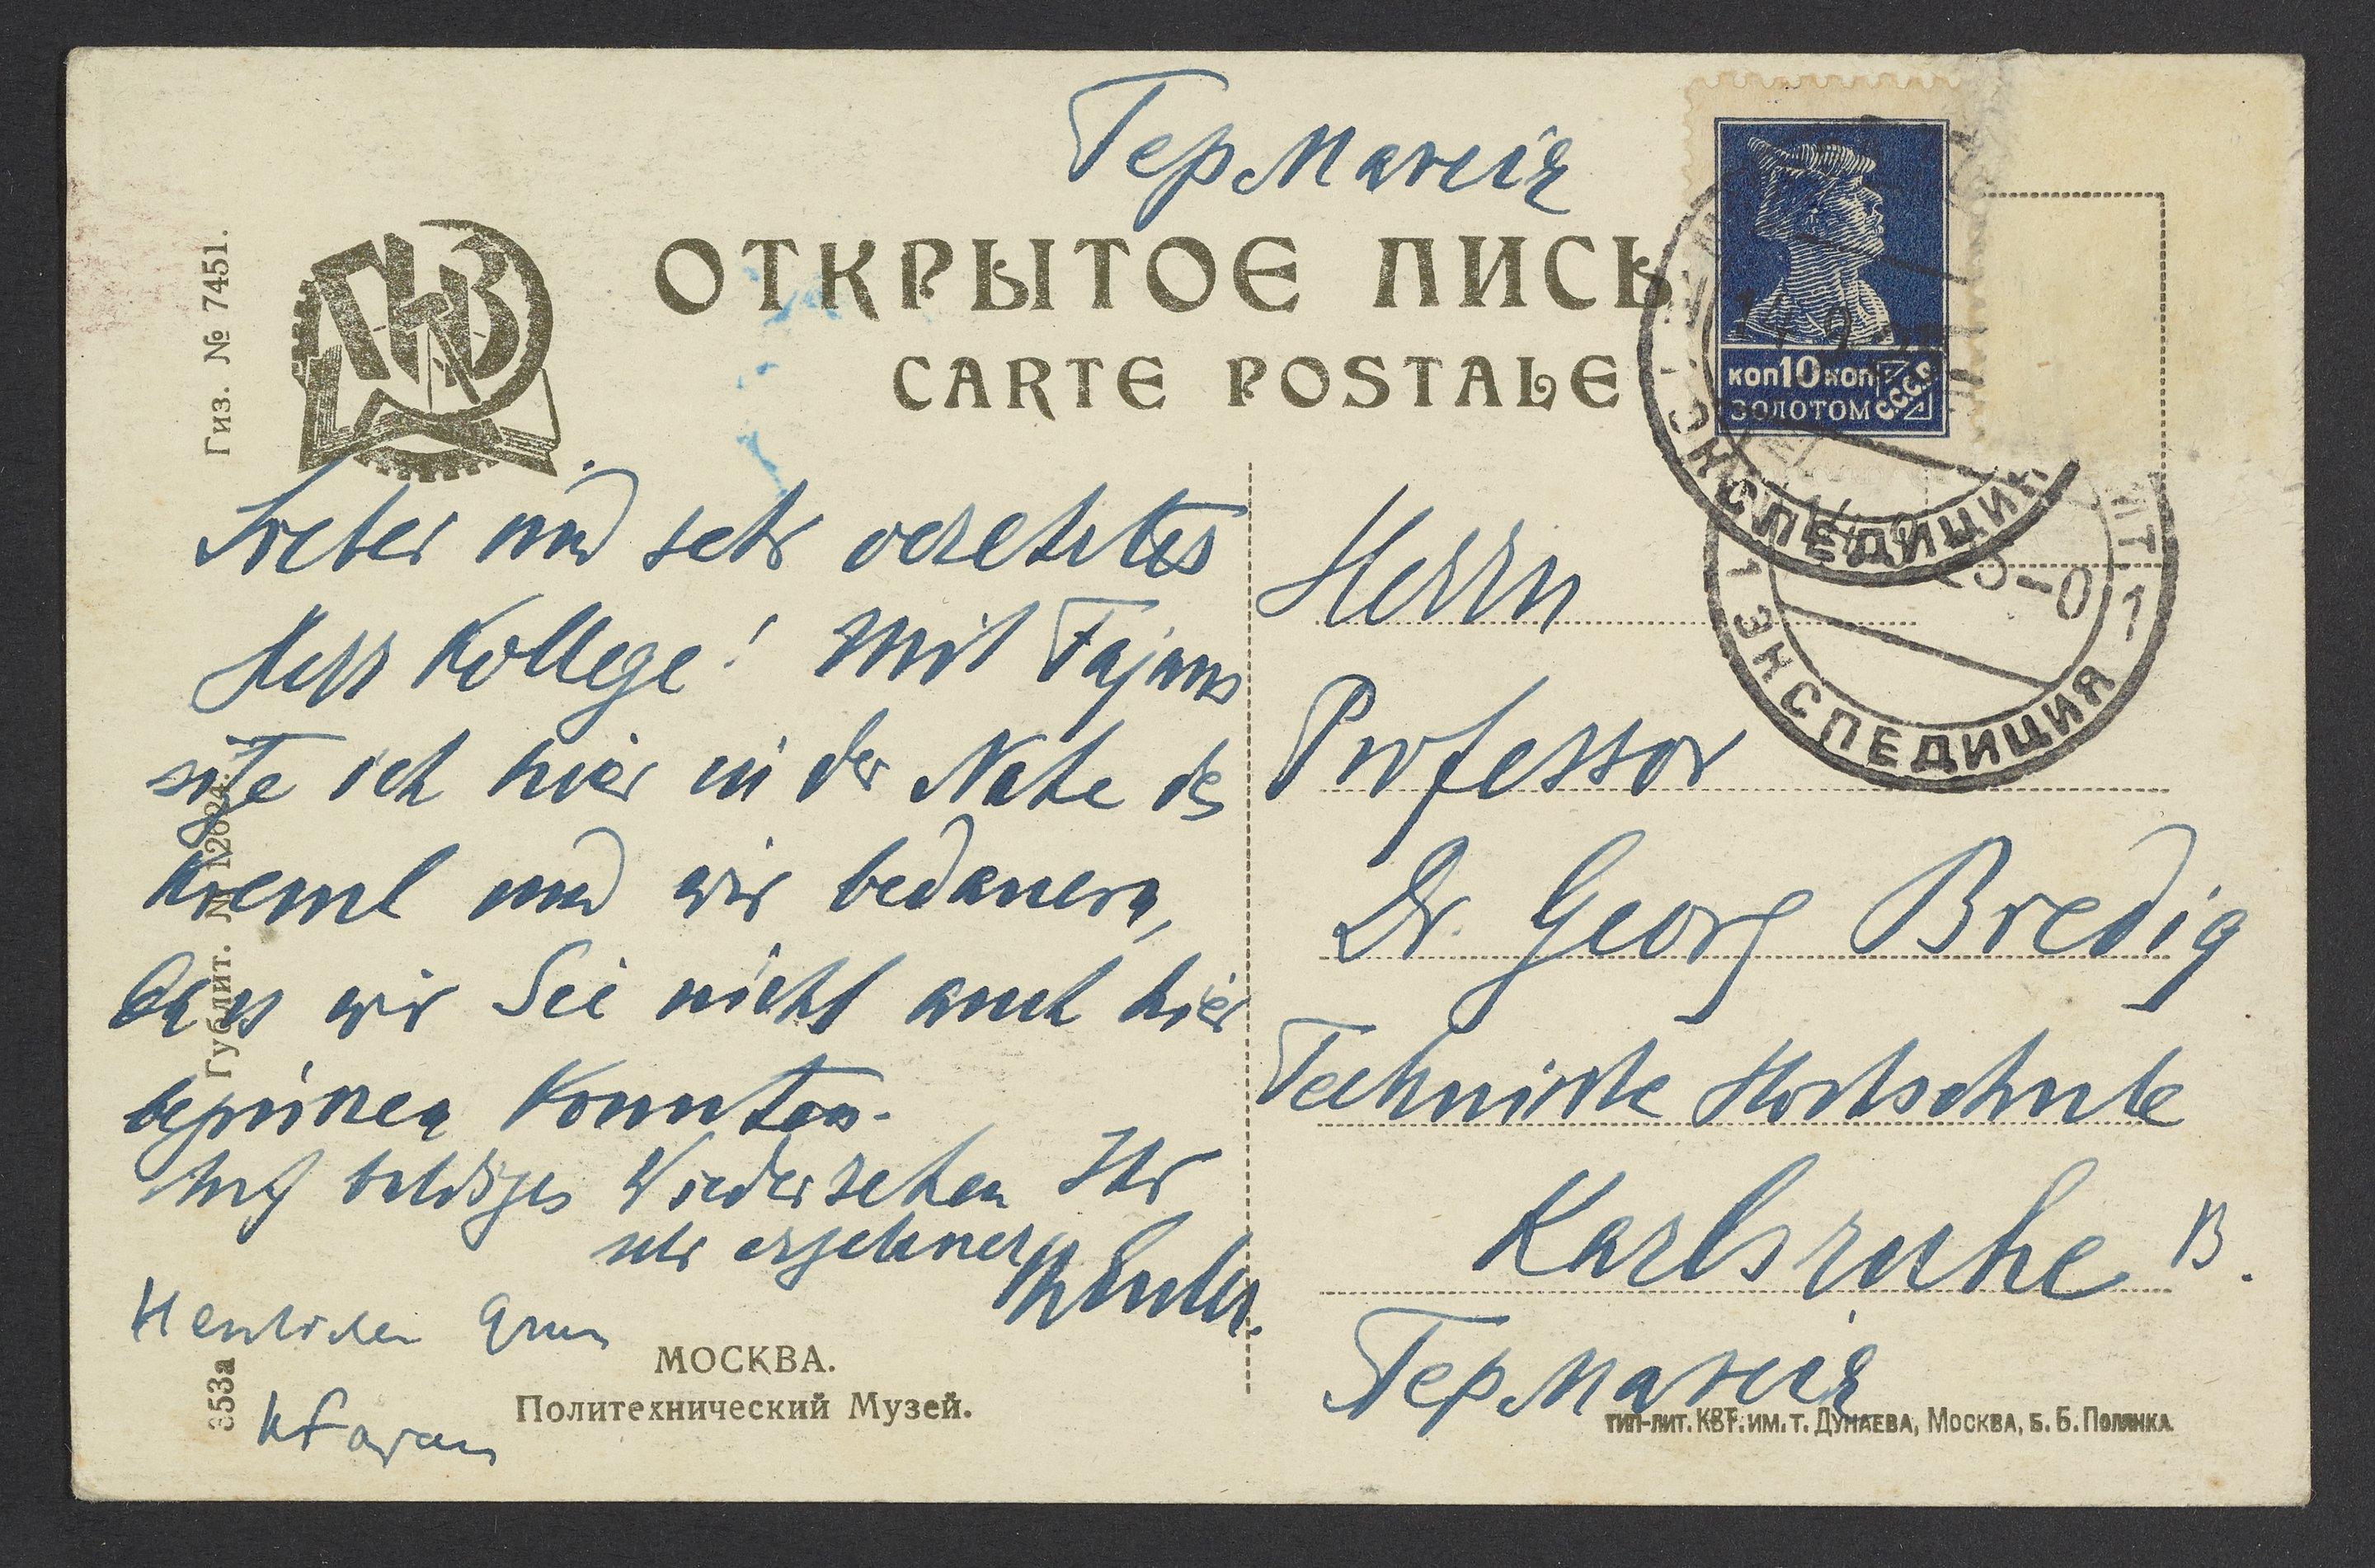 Германія
ОТКРЫТОЕ ПИСЬ
CARTE POSTALE
Гиз. № 7451.
КОП 10 КОП
ЗОЛОТОМ СССР
ЭКСПЕДИЦИЯ
1 ЭКСПЕДИЦИЯ 1
Lieber und sehr verehrtes
Herr Kollege! Mit Fajans
sitze ich hier in der Nähe des
Kreml und wir bedauern,
dass wir Sie nicht auch hier
begrüssen konnten.
Auf baldiges Wiedersehen Ihr
sehr ergebener
Herzlichen Gruss
K Fajans
Herrn
Professor
Dr. Georg Bredig
Technische Hochschule
Karlsruhe B.
Германія
Гублит. №
353а
МОСКВА.
Политехнический Музей.
ТИП-ЛИТ. КВТ. ИМ. Т. ДУНАЕВА, МОСКВА, Б. Б. ПОЛЯНКА